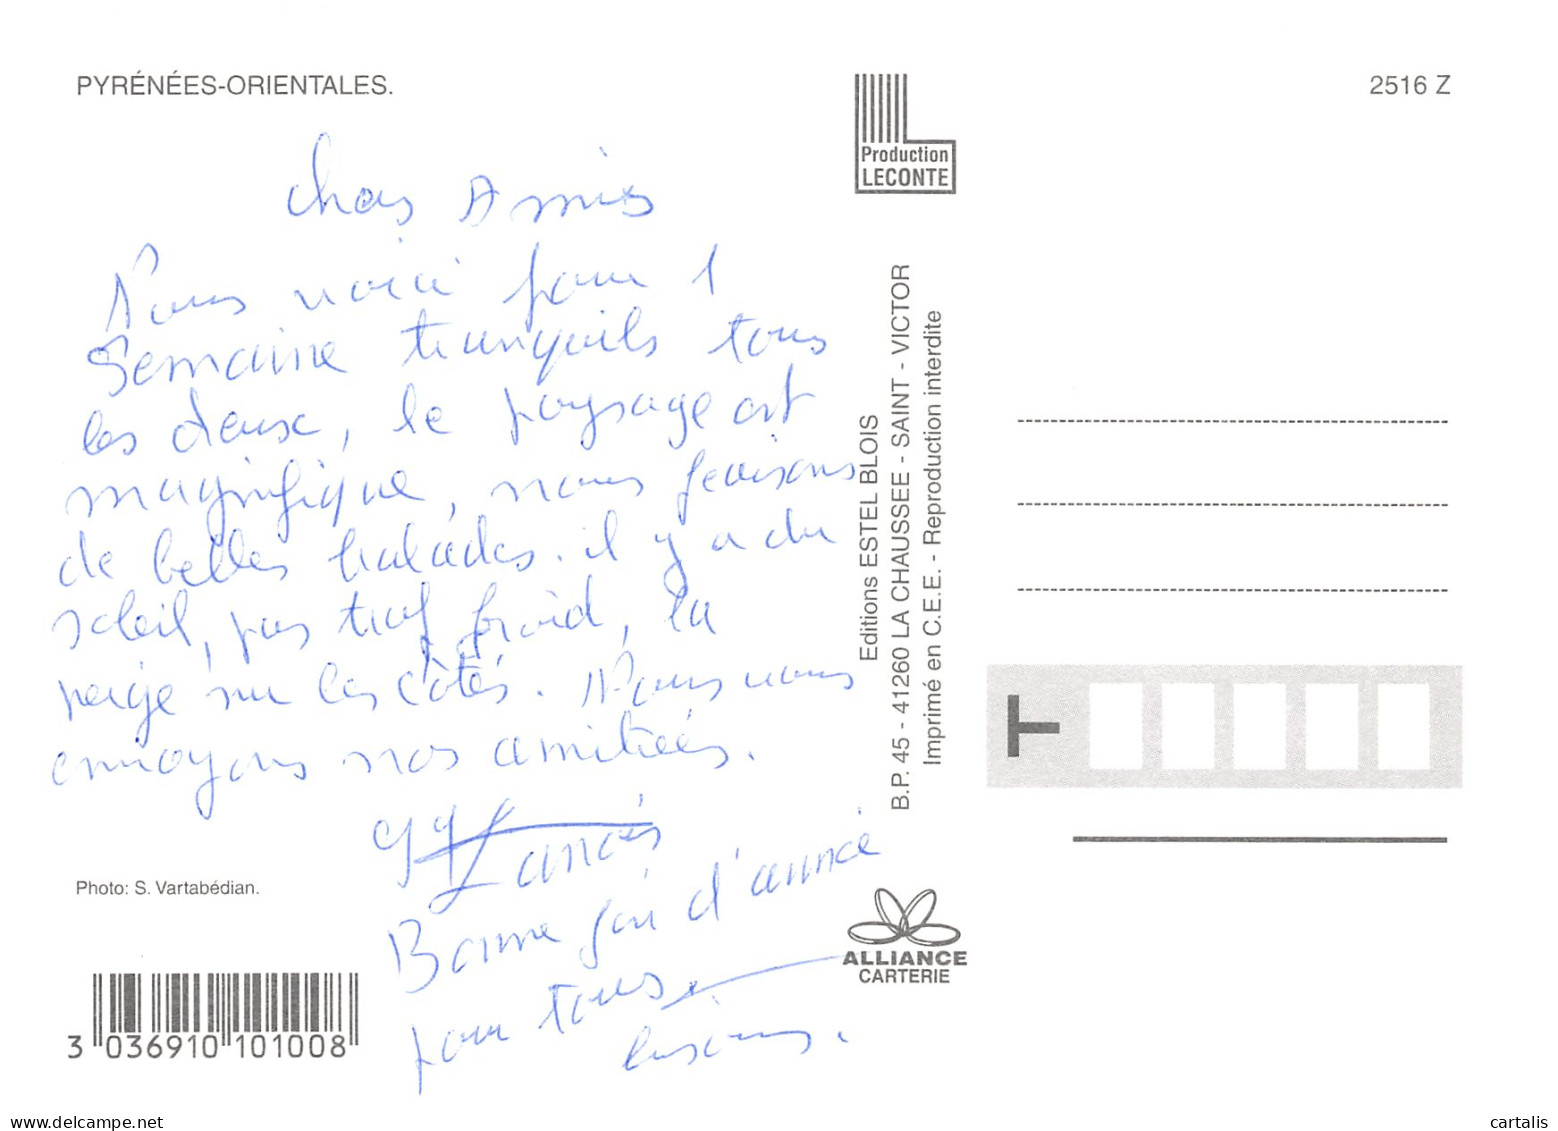 PYRÉNÉES-ORIENTALES.
2516 Z
Production
LECONTE
chers Amis
Nous voici pour 1
Semaine tranquils tous
les deux, le paysage est
magnifique, nous faisons
de belles balades. il y a du
soleil, pas trop froid, la
neige sur les côtés. Nous vous
envoyons nos amitiés.
Bonne fin d'année
pour tous
bisous.
Photo: S. Vartabédian.
3 036910 101008
Editions ESTEL BLOIS
B.P. 45 - 41260 LA CHAUSSEE - SAINT - VICTOR
Imprimé en C.E.E. - Reproduction interdite
ALLIANCE
CARTERIE
delcampe.net
cartalis